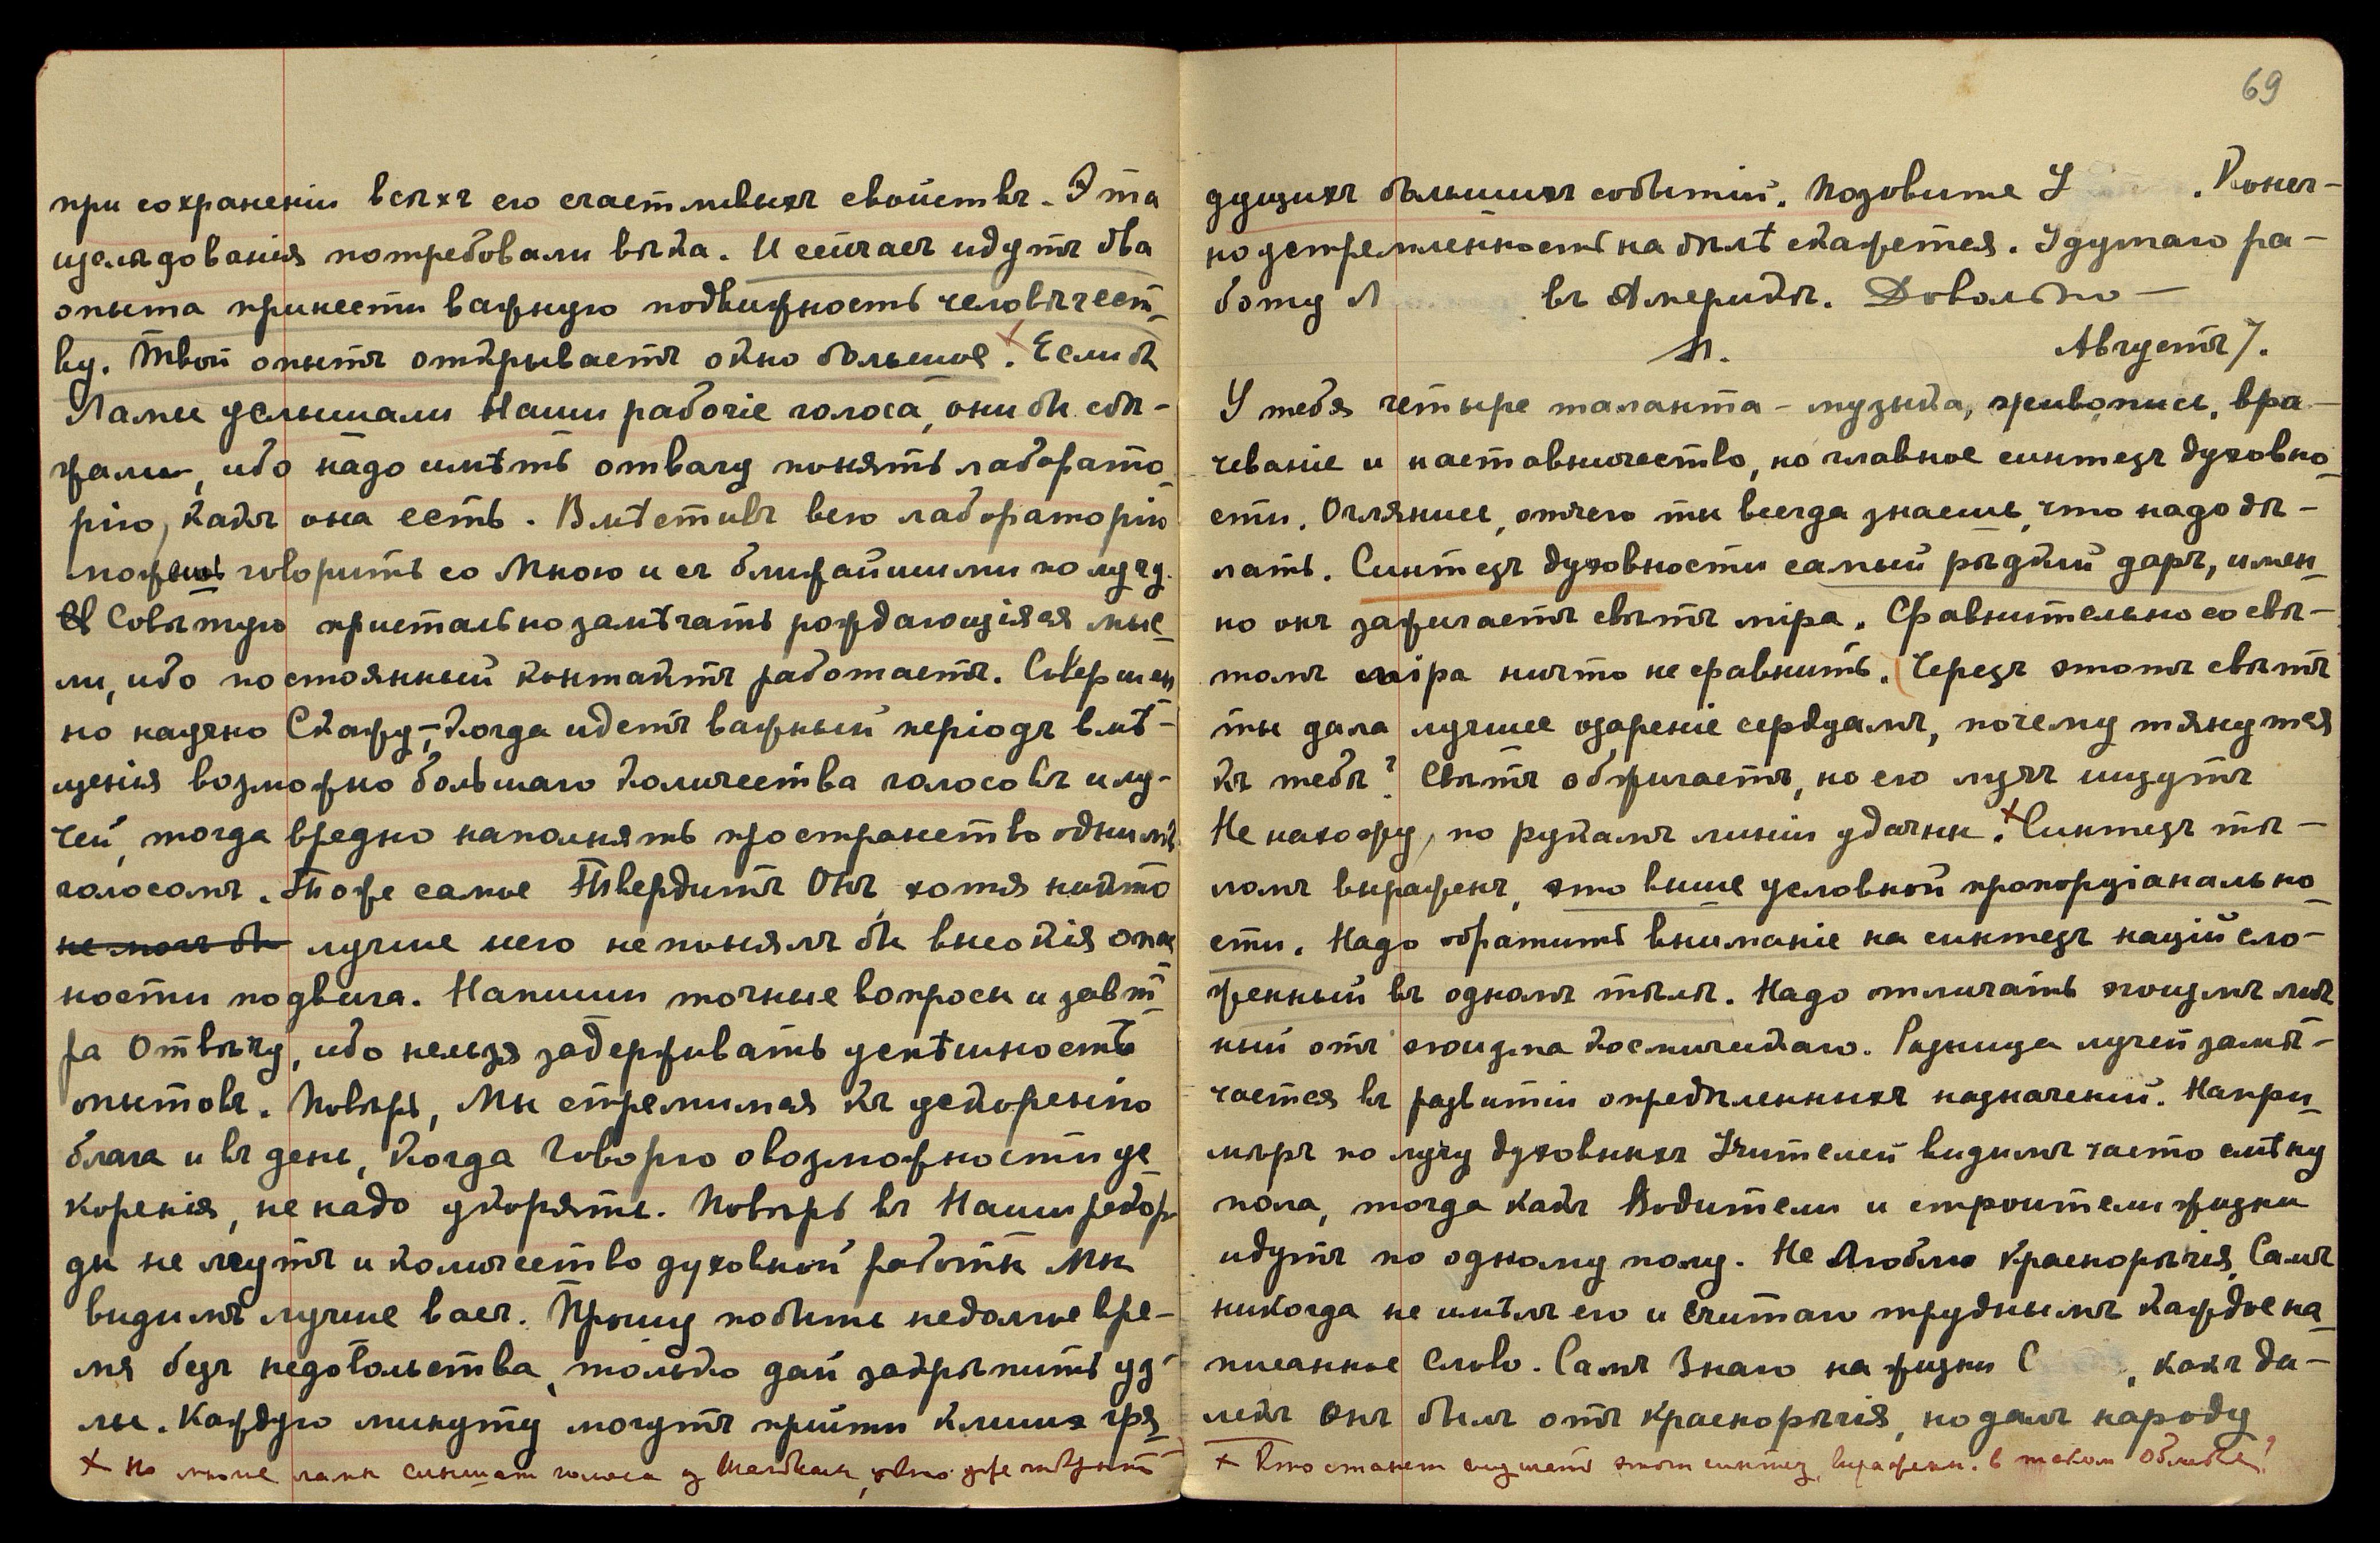 при сохраненіи всѣхъ его счастливыхъ свойствъ. Эта
изслѣдованія потребовали вѣка. И сейчасъ идутъ два
опыта принести важную подвижность человѣчест-
ву. Твой опытъ открываетъ окно большое. Если бъ
Ламы услышали Наши рабочіе голоса, они бы сбѣ-
жали, ибо надо имѣть отвагу понять лаборато-
рію, какъ она есть. Вмѣстивъ всю лабораторію
можешь говорить со Мною и съ ближайшими по лучу.
Совѣтую пристально замѣчать рождающіяся мыс-
ли, ибо постоянный контактъ работаетъ. Совершен
но научно Скажу, – когда идетъ важный періодъ вмѣ-
щенія возможно большаго количества голосовъ и лу-
чей, тогда вредно наполнять пространство однимъ
голосомъ. Тоже самое Твердитъ Онъ хотя никто
не могъ бы лучше него не понялъ бы высокія опас
ности подвига. Напиши точные вопросы и завт-
ра Отвѣчу, ибо нельзя задерживать успѣшность
опытовъ. Повѣрь, Мы стремимся къ ускоренію
блага и въ день, когда Говорю о возможности ус-
коренія, не надо укорять. Повѣрь въ Наши рекор-
ды не лгутъ и количество духовной работы Мы
видимъ лучше васъ. Прошу побыть недолгое вре-
мя безъ недовольства, только дай закрѣпить уз-
лы. Каждую минуту могутъ прийти клише гря-
x Но многие ламы слышат голоса из Шамбалы, уже
69
дущихъ большихъ событій. Позовите У . Конеч-
но устремленность на дѣлѣ скажется. Удумаю ра-
боту Л въ Америкѣ. Довольно –
Л. Августъ 7.
У тебя четыре таланта – музыка, живопись, вра-
чеваніе и наставничество, но главное синтезъ духовно
сти. Оглянись, отчего ты всегда знаешь, что надо дѣ-
лать. Синтезъ духовности самый рѣдкій даръ, имен-
но онъ зажигаетъ свѣтъ міра. Сравнительно со свѣ-
томъ міра ничто не сравнить. Черезъ этотъ свѣтъ
ты дала лучшее озареніе сердцамъ, почему тянутся
къ тебѣ? Свѣтъ обжигаетъ, но его лучъ ищутъ
Не нахожу, по рукамъ линіи удачны. Синтезъ тѣ-
ломъ выраженъ, это выше условной пропорціанально
сти. Надо обратить вниманіе на синтезъ націй сло-
женный въ одномъ тѣлѣ. Надо отличать эгоизмъ лич
ный отъ эгоизма космическаго. Разница лучей замѣ-
чается въ развитіи опредѣленныхъ назначеній. Напри-
мѣръ по лучу духовныхъ Учителей видимъ часто смѣну
пола, тогда какъ Водители и строители жизни
идутъ по одному полу. Не Люблю краснорѣчія, Самъ
никогда не имѣлъ его и Считаю труднымъ каждое на-
писанное Слово. Самъ Знаю на жизни С , какъ да-
лекъ Онъ былъ отъ краснорѣчія, но далъ народу
x Кто станет изучать этот синтез, выражен. в таком облике?